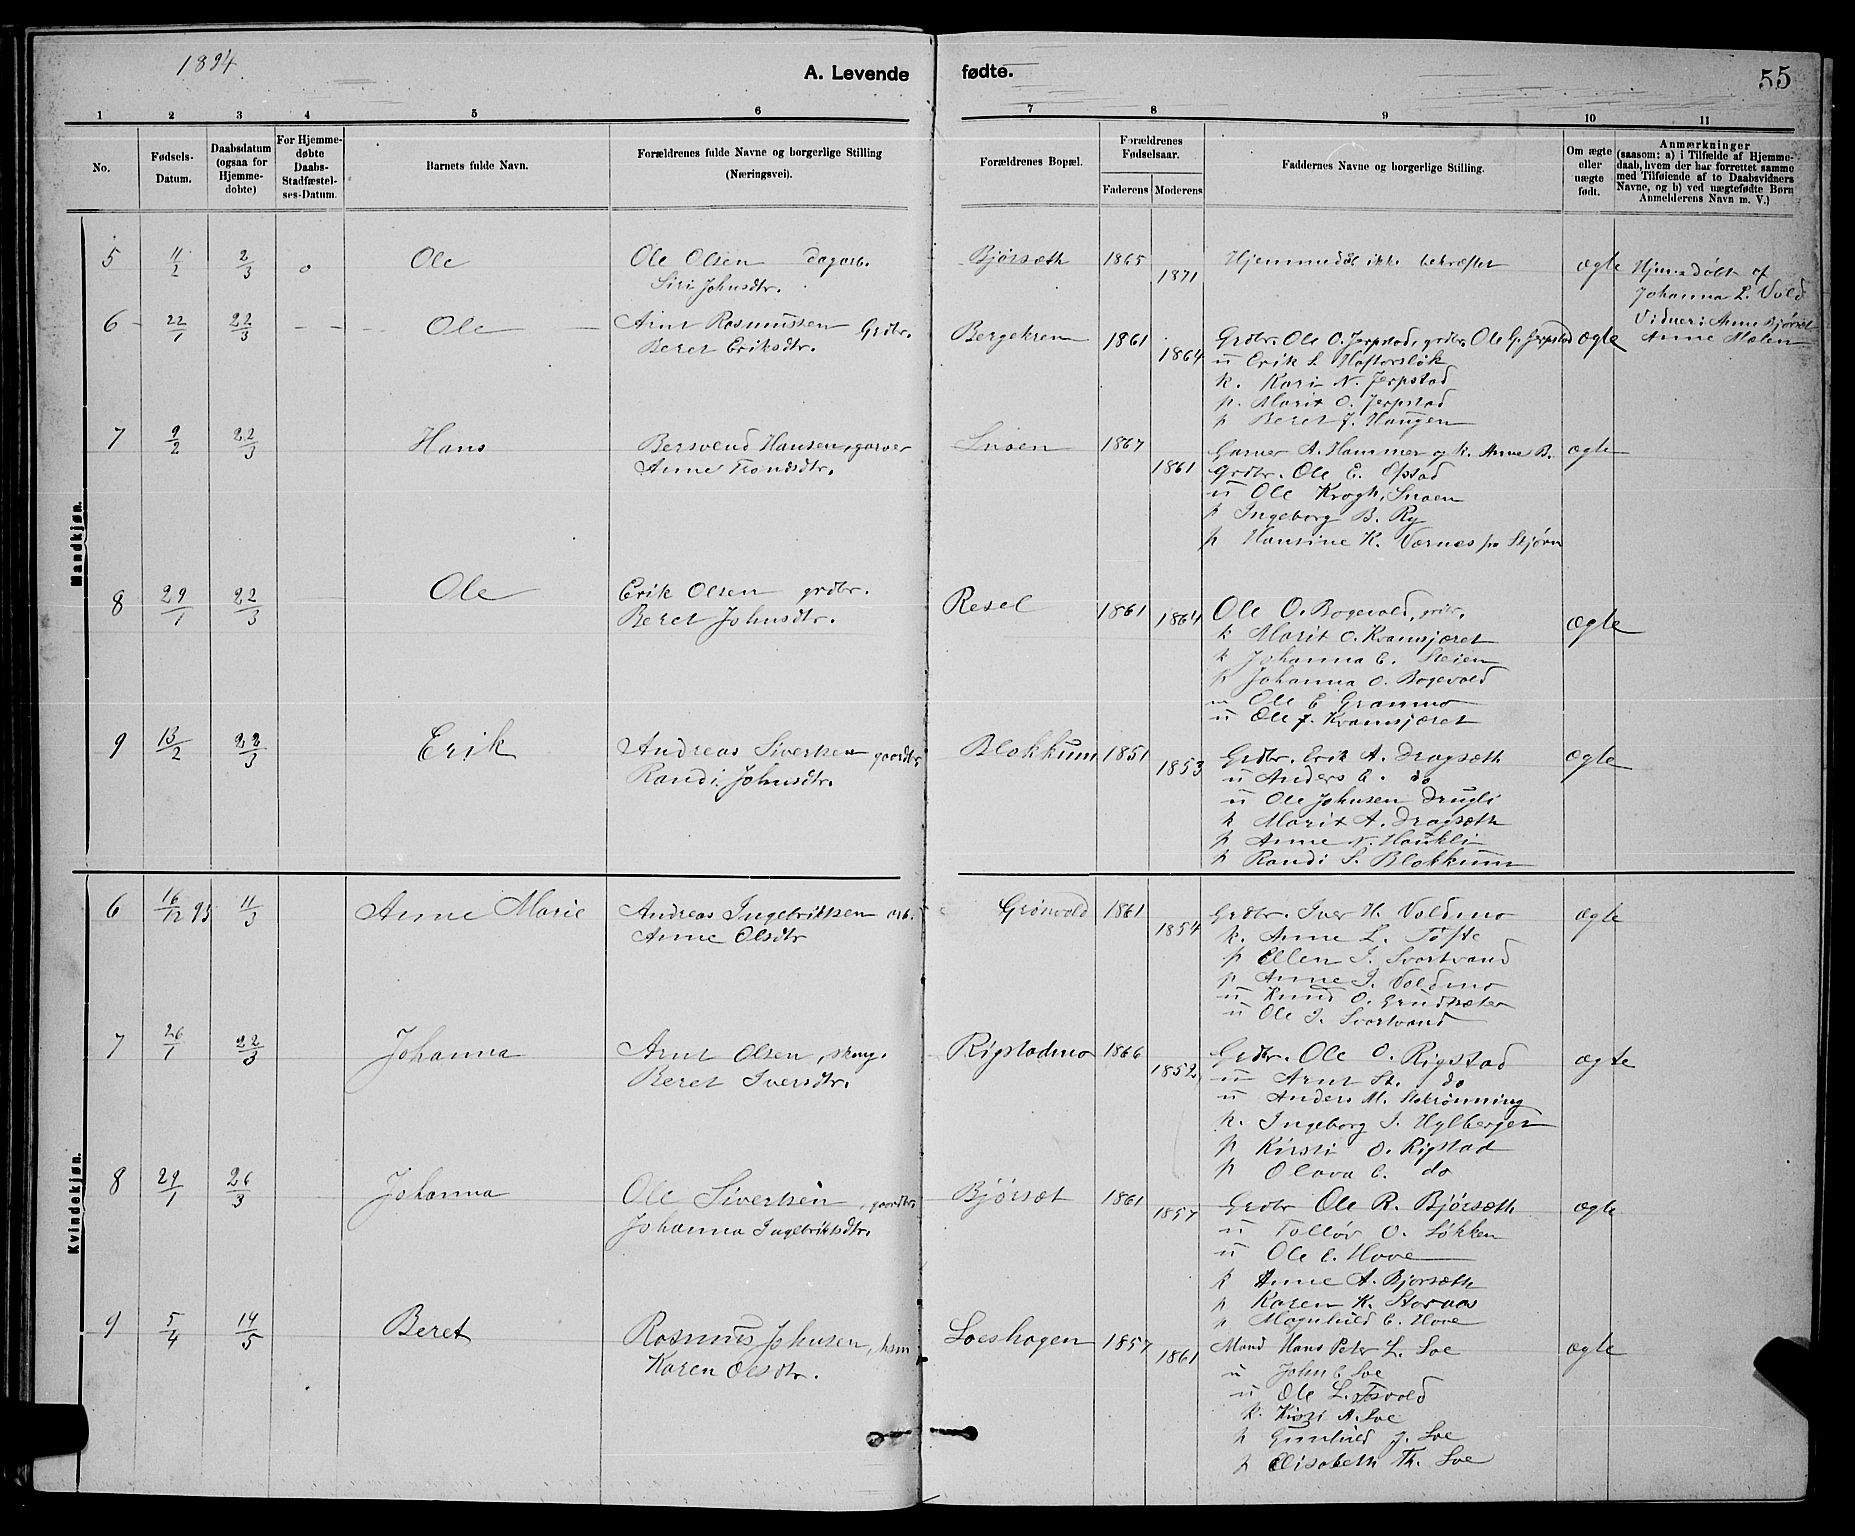 1894.
A. Levende fødte.
55
1 2 3 4 5 6 7 8 9 10 11
No.
Fødsels-Datum.
Daabsdatum (ogsaa for Hjemme-døbte)
For Hjemme-døbte Daabs-Stadfæstel-ses-Datum.
Barnets fulde Navn.
Forældrenes fulde Navne og borgerlige Stilling (Næringsvei).
Forældrenes Bopæl.
Forældrenes Fødselsaar.
Faderens Moderens
Faddernes Navne og borgerlige Stilling.
Om ægte eller uægte født.
Anmærkninger (saasom: a) i Tilfælde af Hjemme-daab, hvem der har forrettet samme med Tilføiende af to Daabsvidners Navne, og b) ved uægtefødte Børn Anmelderens Navn m. V.)
Mandkjøn.
5 11/2 2/3 o Ole Ole Olsen dagarb. Bjørsæth 1865 Hjemmedåb ikke bekræftet ægte Hjemmedøbt af
Siri Johnsdtr. 1871 Johanna L. Vold
Vidner: Anne Bjørset
Anne Mælen
6 22/1 22/3 Ole Arnt Rasmussen Grdbr. Bergekren 1861 Grdbr. Ole O. Jerpstad, grdbr. Ole G. Jerpstad ægte
Beret Eriksdtr. 1864 u Erik L Haftorsløk
k. Kari N. Jerpstad
p. Marit O. Jerpstad
p Beret J. Haugen
7 9/2 22/3 Hans Bersvend Hansen, garver Snoen 1867 Garver A. Hammer og k. Anne B. ægte
Anne Trondsdtr. 1861 Grdbr. Ole E. Opstad
u Ole Krogh, Snoen
p Ingeborg B. Ry
p Hansine K. Værnes fra Stjørn
8 29/1 22/3 Ole Erik Olsen grdbr. Resel 1861 Ole O. Bogevold, grdbr. ægte
Beret Johnsdtr. 1864 k Marit O. Kvamsjæret
k Johanna E. Steien
p Johanna O. Bogevold
u Ole E Grammo
u Ole J. Kvamsjæret
9 13/2 22/3 Erik Andreas Sivertsen gaardbr. Blokkum 1851 Grdbr. Erik A. Dragsæth ægte
Randi Johnsdtr. 1853 u Anders E. do
u Ole Johnsen Drugli
k Marit A. Dragsæth
p Anne N. Haukli
p Randi S. Blokkum
Kvindekjøn.
6 16/12 93 11/3 Anne Marie Andreas Ingebriktsen arb. Grønvold 1861 Grdbr. Iver H. Voldmo ægte
Anne Olsdtr 1854 k. Anne L. Tofte
p Ellen I. Svartvand
p Anne I. Voldmo
u Knud O. Grindsæter
u Ole I. Svartvand
7 26/1 22/3 Johanna Arnt Olsen, skomg. Rigstadmo 1866 Grdbr. Ole O. Rigstad ægte
Beret Iversdtr. 1852 u Arnt St. do
u Anders M. Stokrønning
k. Ingeborg I. Hylberget
p Kirsti O. Rigstad
p Olava E. do
8 29/1 26/3 Johanna Ole Sivertsen, gaardbr. Bjørset 1861 Grdbr Ole R. Bjørsæth ægte
Johanna Ingebriktsdtr. 1857 u Tolløv O. Løkken
u Ole E. Hove
k Anne A. Bjørsæth
p Karen K. Stornæs
p Magnhild E. Hove
9 5/4 14/5 Beret Rasmus Johnsen, hsm Loeshagen 1857 Mand Hans Peter L. Loe ægte
Karen Olsdtr. 1861 u John E Loe
u Ole L. Tsvold
k. Kirsti A. Loe
p Gunhild J. Loe
p Elisabeth Th. Loe